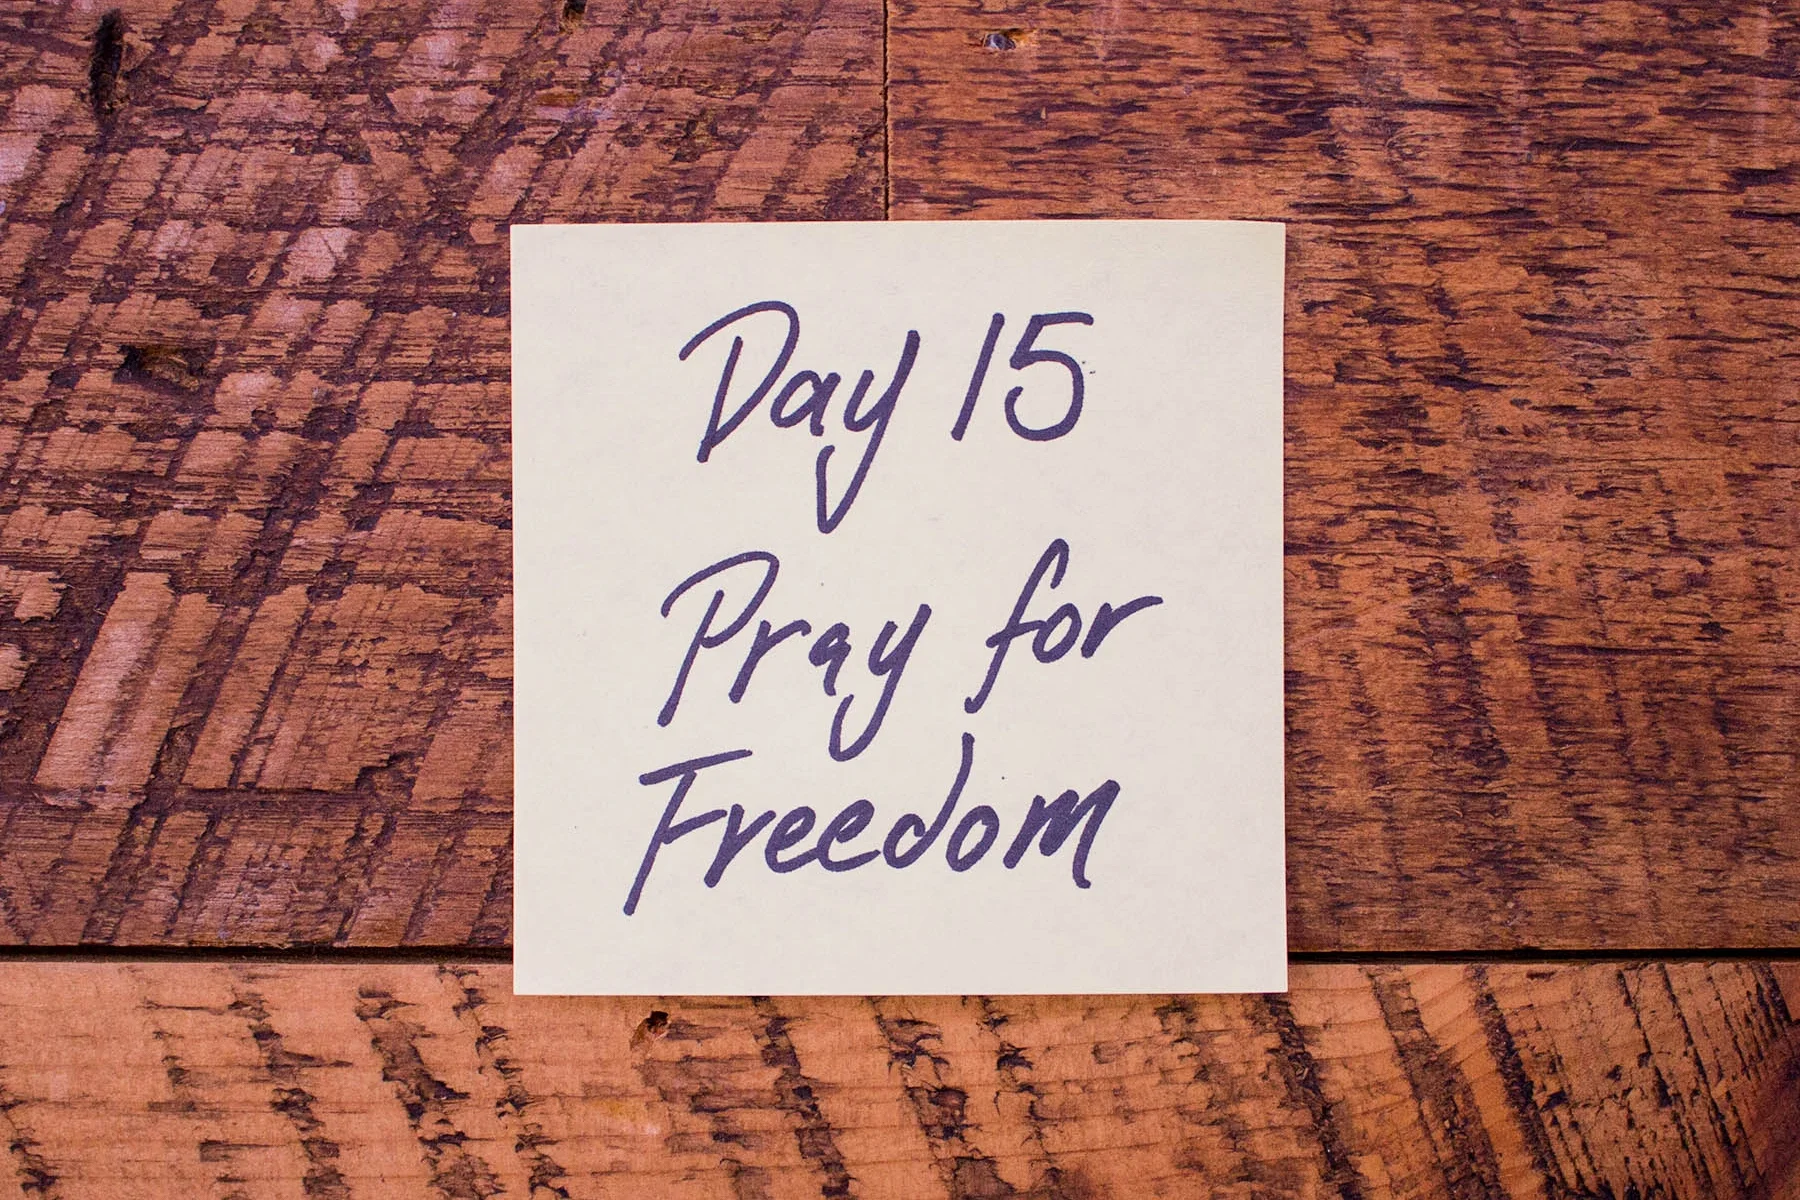 Day 15
Pray for
Freedom